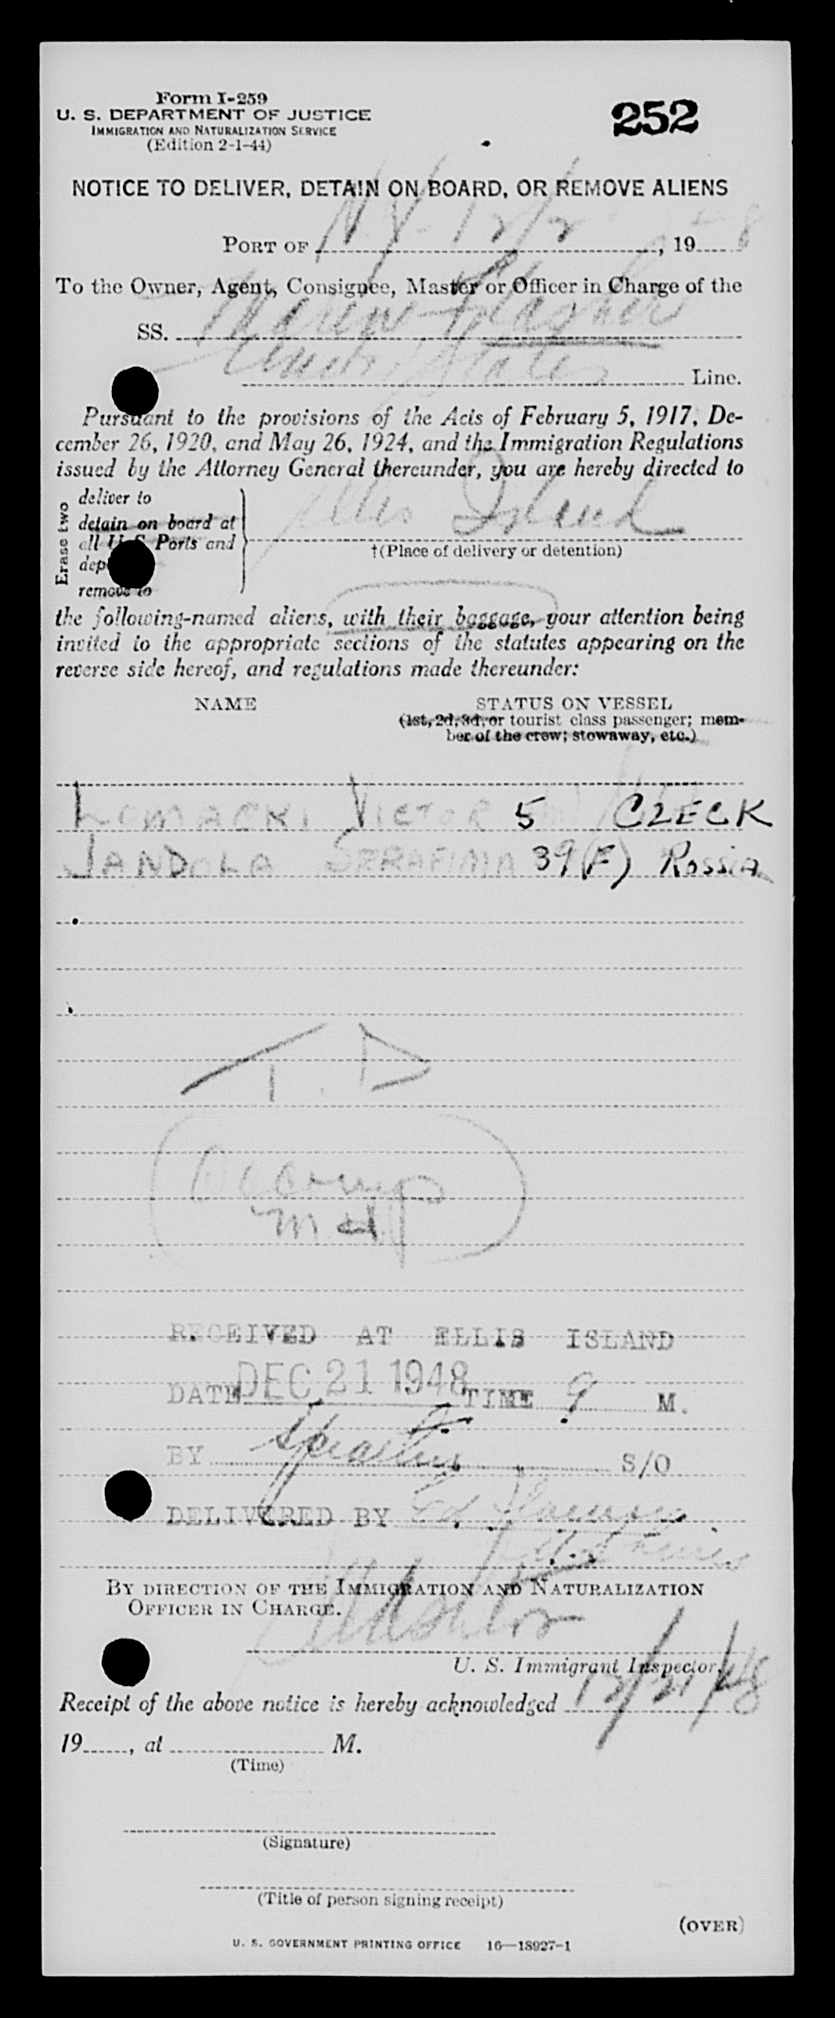 Form I-259
U. S. DEPARTMENT OF JUSTICE
IMMIGRATION AND NATURALIZATION SERVICE
(Edition 2-1-44)
252
NOTICE TO DELIVER, DETAIN ON BOARD, OR REMOVE ALIENS
PORT OF N.Y. 12/2 , 19 8
To the Owner, Agent, Consignee, Master or Officer in Charge of the
SS. Marine Flasher
United States Line.
Pursuant to the provisions of the Acts of February 5, 1917, De-
cember 26, 1920, and May 26, 1924, and the Immigration Regulations
issued by the Attorney General thereunder, you are hereby directed to
Erase two
deliver to
detain on board at
all U S Ports and
dep
remove to
Ellis Island
†(Place of delivery or detention)
the following-named aliens, with their baggage, your attention being
invited to the appropriate sections of the statutes appearing on the
reverse side hereof, and regulations made thereunder:
NAME
STATUS ON VESSEL
(1st, 2d, 3d, or tourist class passenger; mem-
ber of the crew; stowaway, etc.)
LOMACKI VICTOR 5 CZECK
JANDOLA SERAFIMA 39 (F) Russia
T.D
Accomp
RECEIVED AT ELLIS ISLAND
DATE DEC 21 1948 TIME 9 M.
BY S/O
DELIVERED BY Ed
BY DIRECTION OF THE IMMIGRATION AND NATURALIZATION
OFFICER IN CHARGE.
U. S. Immigrant Inspector.
Receipt of the above notice is hereby acknowledged 12/21/48
19 , at M.
(Time)
(Signature)
(Title of person signing receipt)
(OVER)
U. S. GOVERNMENT PRINTING OFFICE 16—18927-1